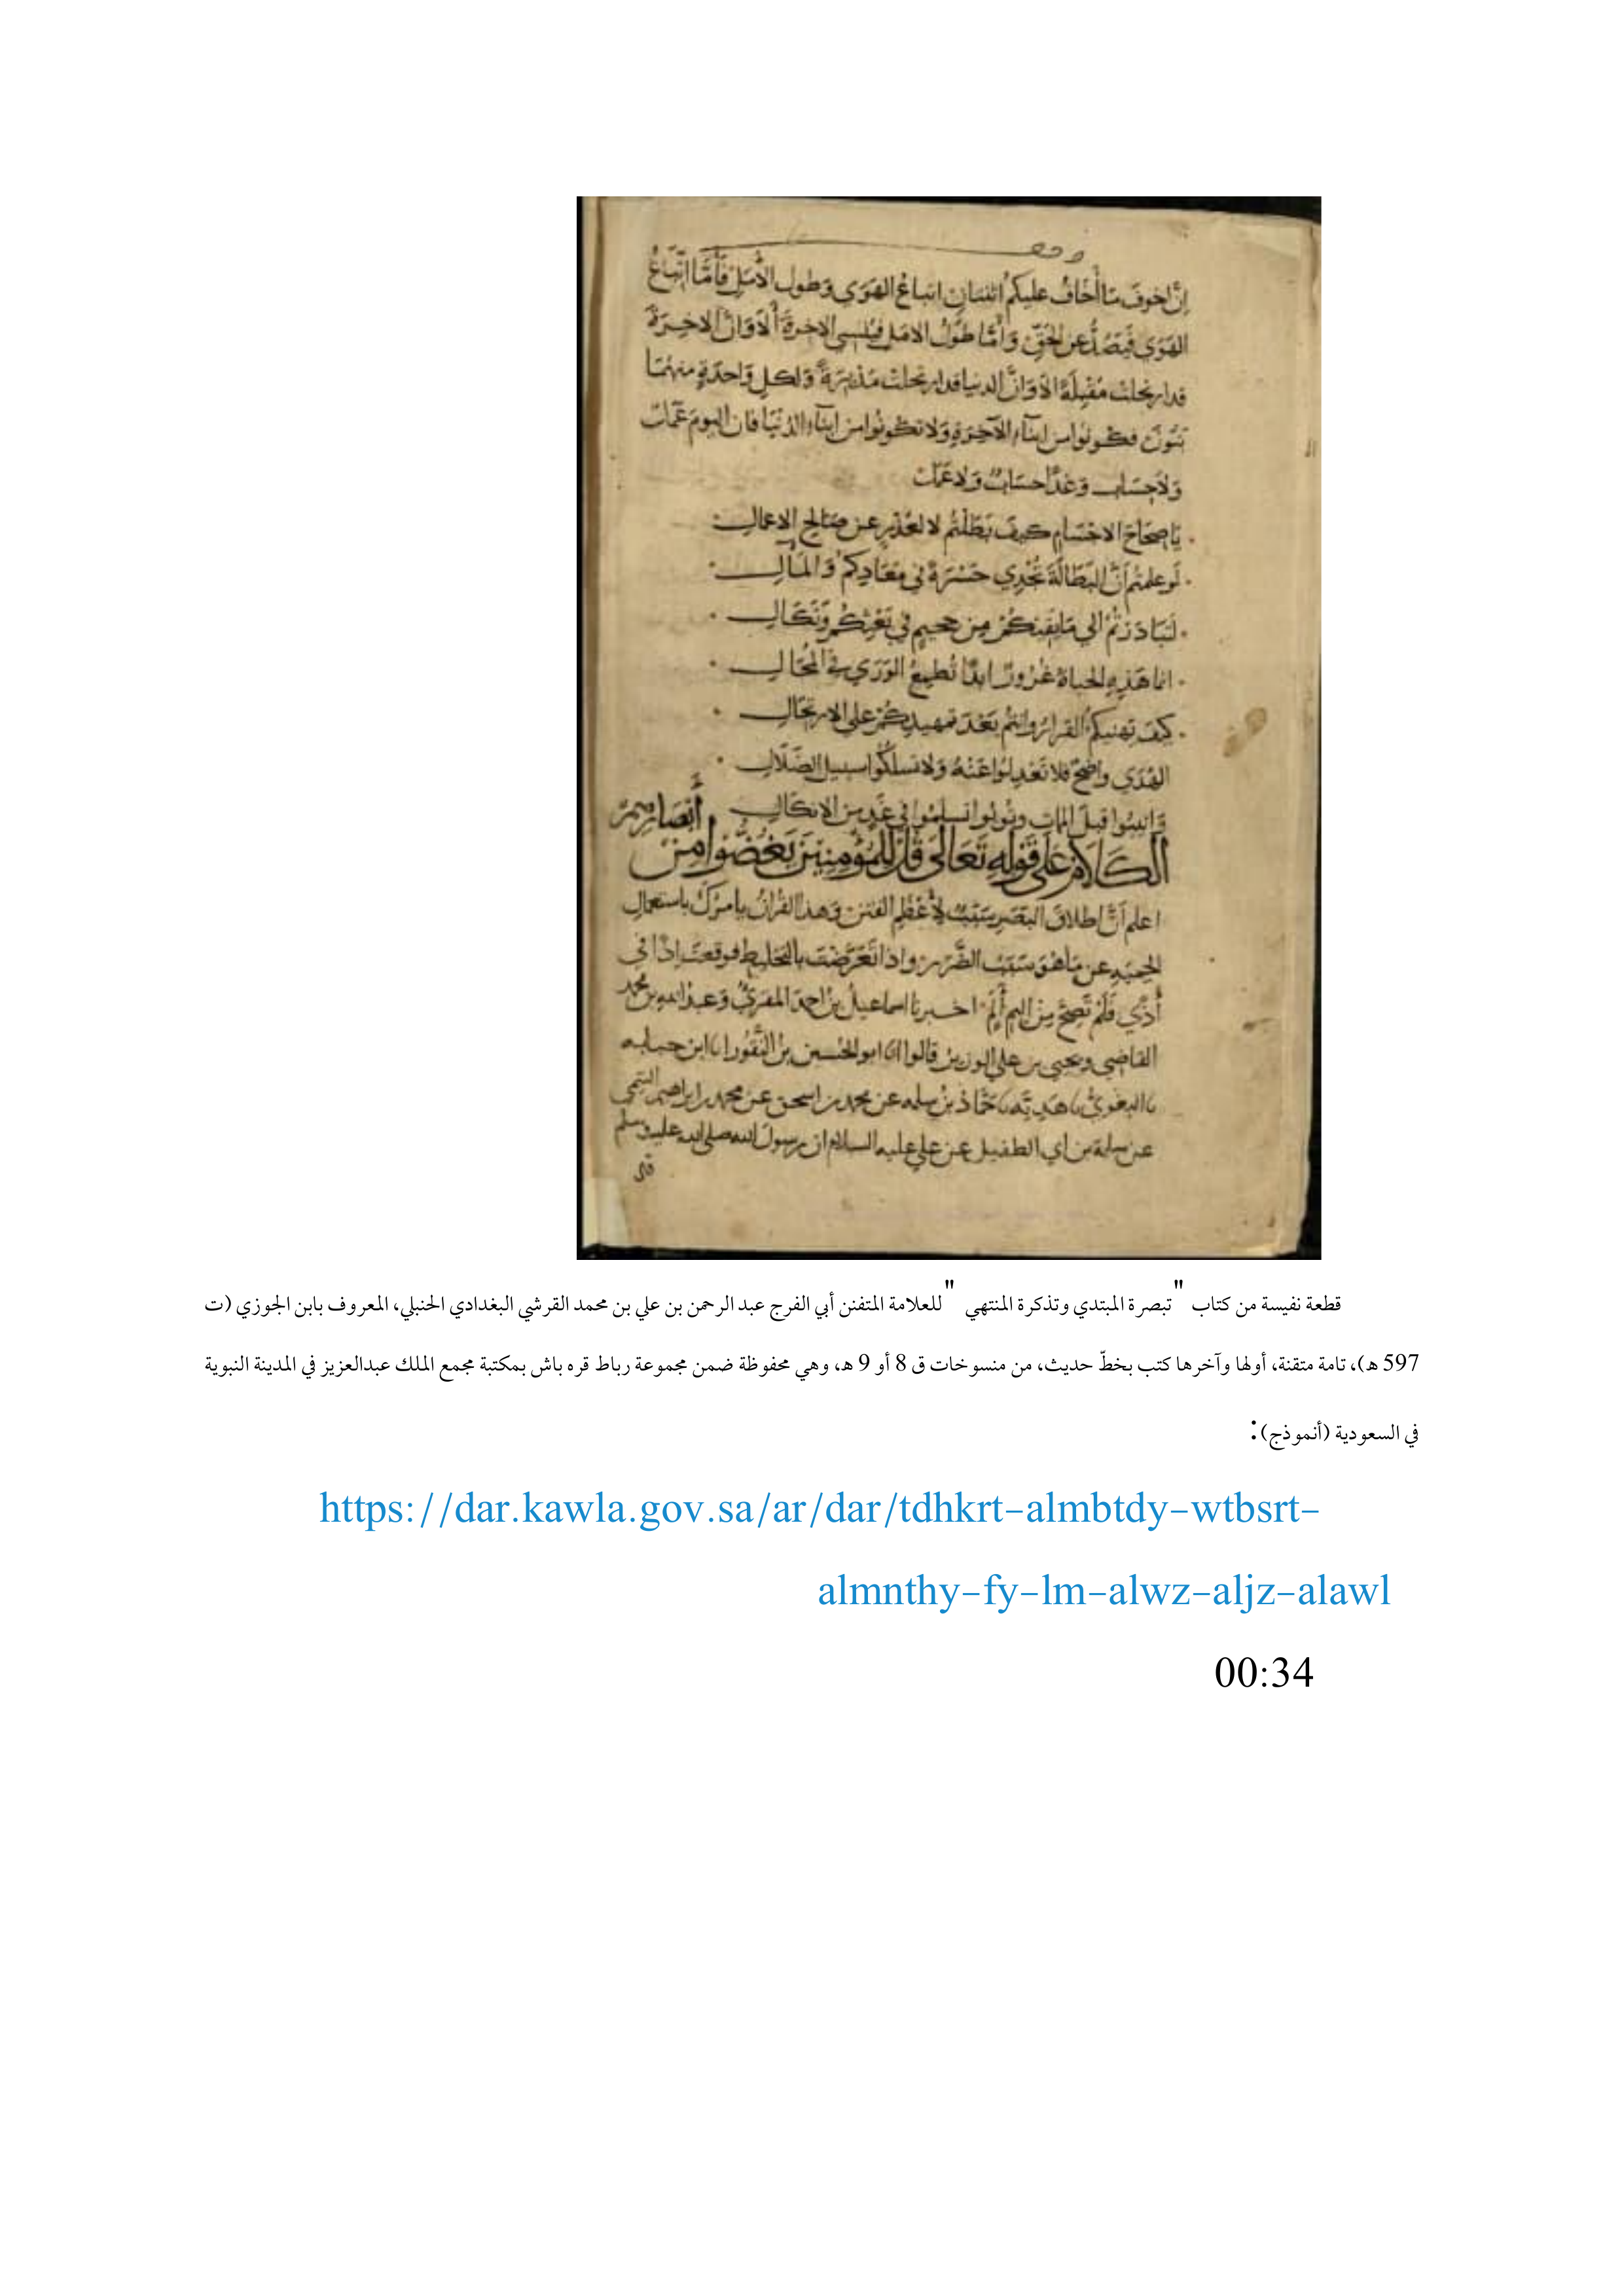 وقف
إنَّ اخوفَ مَا أخَافُ عليكُم اثنتان اتباعُ الهَوَى وَطول الأمَل فَأمَّا اتّبَاعُ
الهَوَى فَيَصُدُّ عن الحَقِّ وَأمَّا طوُلُ الامَل فيُنسى الاخرةَ ألاَ وَانَّ الاخِرَةَ
قد ارتحلت مُقْبلَةً الاَ وَانَّ الدنيا قد ارتحلت مُدْبِرَةً وَلكل وَاحدَةٍ منهُمَا
بَنُونَ فكونُوا من ابنَآءِ الآخِرَةِ وَلا تكونُوا من ابنَآءِ الدُنيَا فان اليومَ عَمَلٌ
وَلاَ حِسَابَ وَغدًا حسَابٌ وَلا عَمَل
يَا صِحَاحَ الاجْسَامِ كيفَ بَطَلْتُم لا لعُذْرٍ عن صَالح الاعمال
لَو علمتُم أنَّ البَطَالَةَ تُجْدِي حَسْرَةً في مَعَادِكُم وَالمَآل
لَتَبَادَرْتُمْ الي مَا يَقيكُمْ مِن جحيمٍ في بَعْثِكُمْ وَنَكَال
انما هَذِهِ الحياةُ غُرُورٌ ابدًا تُطمِعُ الوَرَى في المُحَال
كيفَ تهنيكُمُ القرارُ وانتُم بَعْدَ تمهيدِكُمْ علي الارتحَال
الهُدَى واضِحٌ فلا تَعْدِلوُا عَنْهُ وَلا تسلكُوا سبيل الضَلال
وَانيبُوا قبلَ الممات وتُوبُوا تسلمُوا في غَدٍ من الانكَال
أبْصَارِهِمْ
الكَلاَمُ عَلَى قَوْلِهِ تَعَالَى قُلْ لِلْمُؤْمِنِيْنَ يَغُضُّوا مِنْ
اعلم أنَّ اطلاق البَصَرِ سَبَبٌ لأعْظم الفتن وَهذا القُرانُ يامرُكَ باستعمال
الحِميَةِ عن مَا هُوَ سَبَبُ الضَّرر واذا تَعَرَّضْتَ بالتخليط فوقعتَ اذًا في
أذًى فَلَمْ تَصِحَّ مِنْ اليم ألَمٍ اخبرنا اسماعيلُ بن احمد المقريُّ وَعبد الله بن محمد
القاضي ويحيى بن علي الوزير قالوا انا ابو الحُسين بن النَّقُور انا ابن حبابه
نا البغويُّ نا هدبَه نا حَمَّاد بن سلمه عن محمد بن اسحق عن محمد بن ابراهيم التيمي
عن سلمة بن أبي الطفيل عن علي عليه السلام ان رسولَ الله صلى الله عليه وسلم
قطعة نفيسة من كتاب "تبصرة المبتدي وتذكرة المنتهي "للعلامة المتفنن أبي الفرج عبد الرحمن بن علي بن محمد القرشي البغدادي الحنبلي، المعروف بابن الجوزي (ت
597 هـ)، تامة متقنة، أولها وآخرها كتب بخطّ حديث، من منسوخات ق 8 أو 9 هـ، وهي محفوظة ضمن مجموعة رباط قره باش بمكتبة مجمع الملك عبدالعزيز في المدينة النبوية
في السعودية (أنموذج):
https://dar.kawla.gov.sa/ar/dar/tdhkrt-almbtdy-wtbsrt-
almnthy-fy-lm-alwz-aljz-alawl
00:34